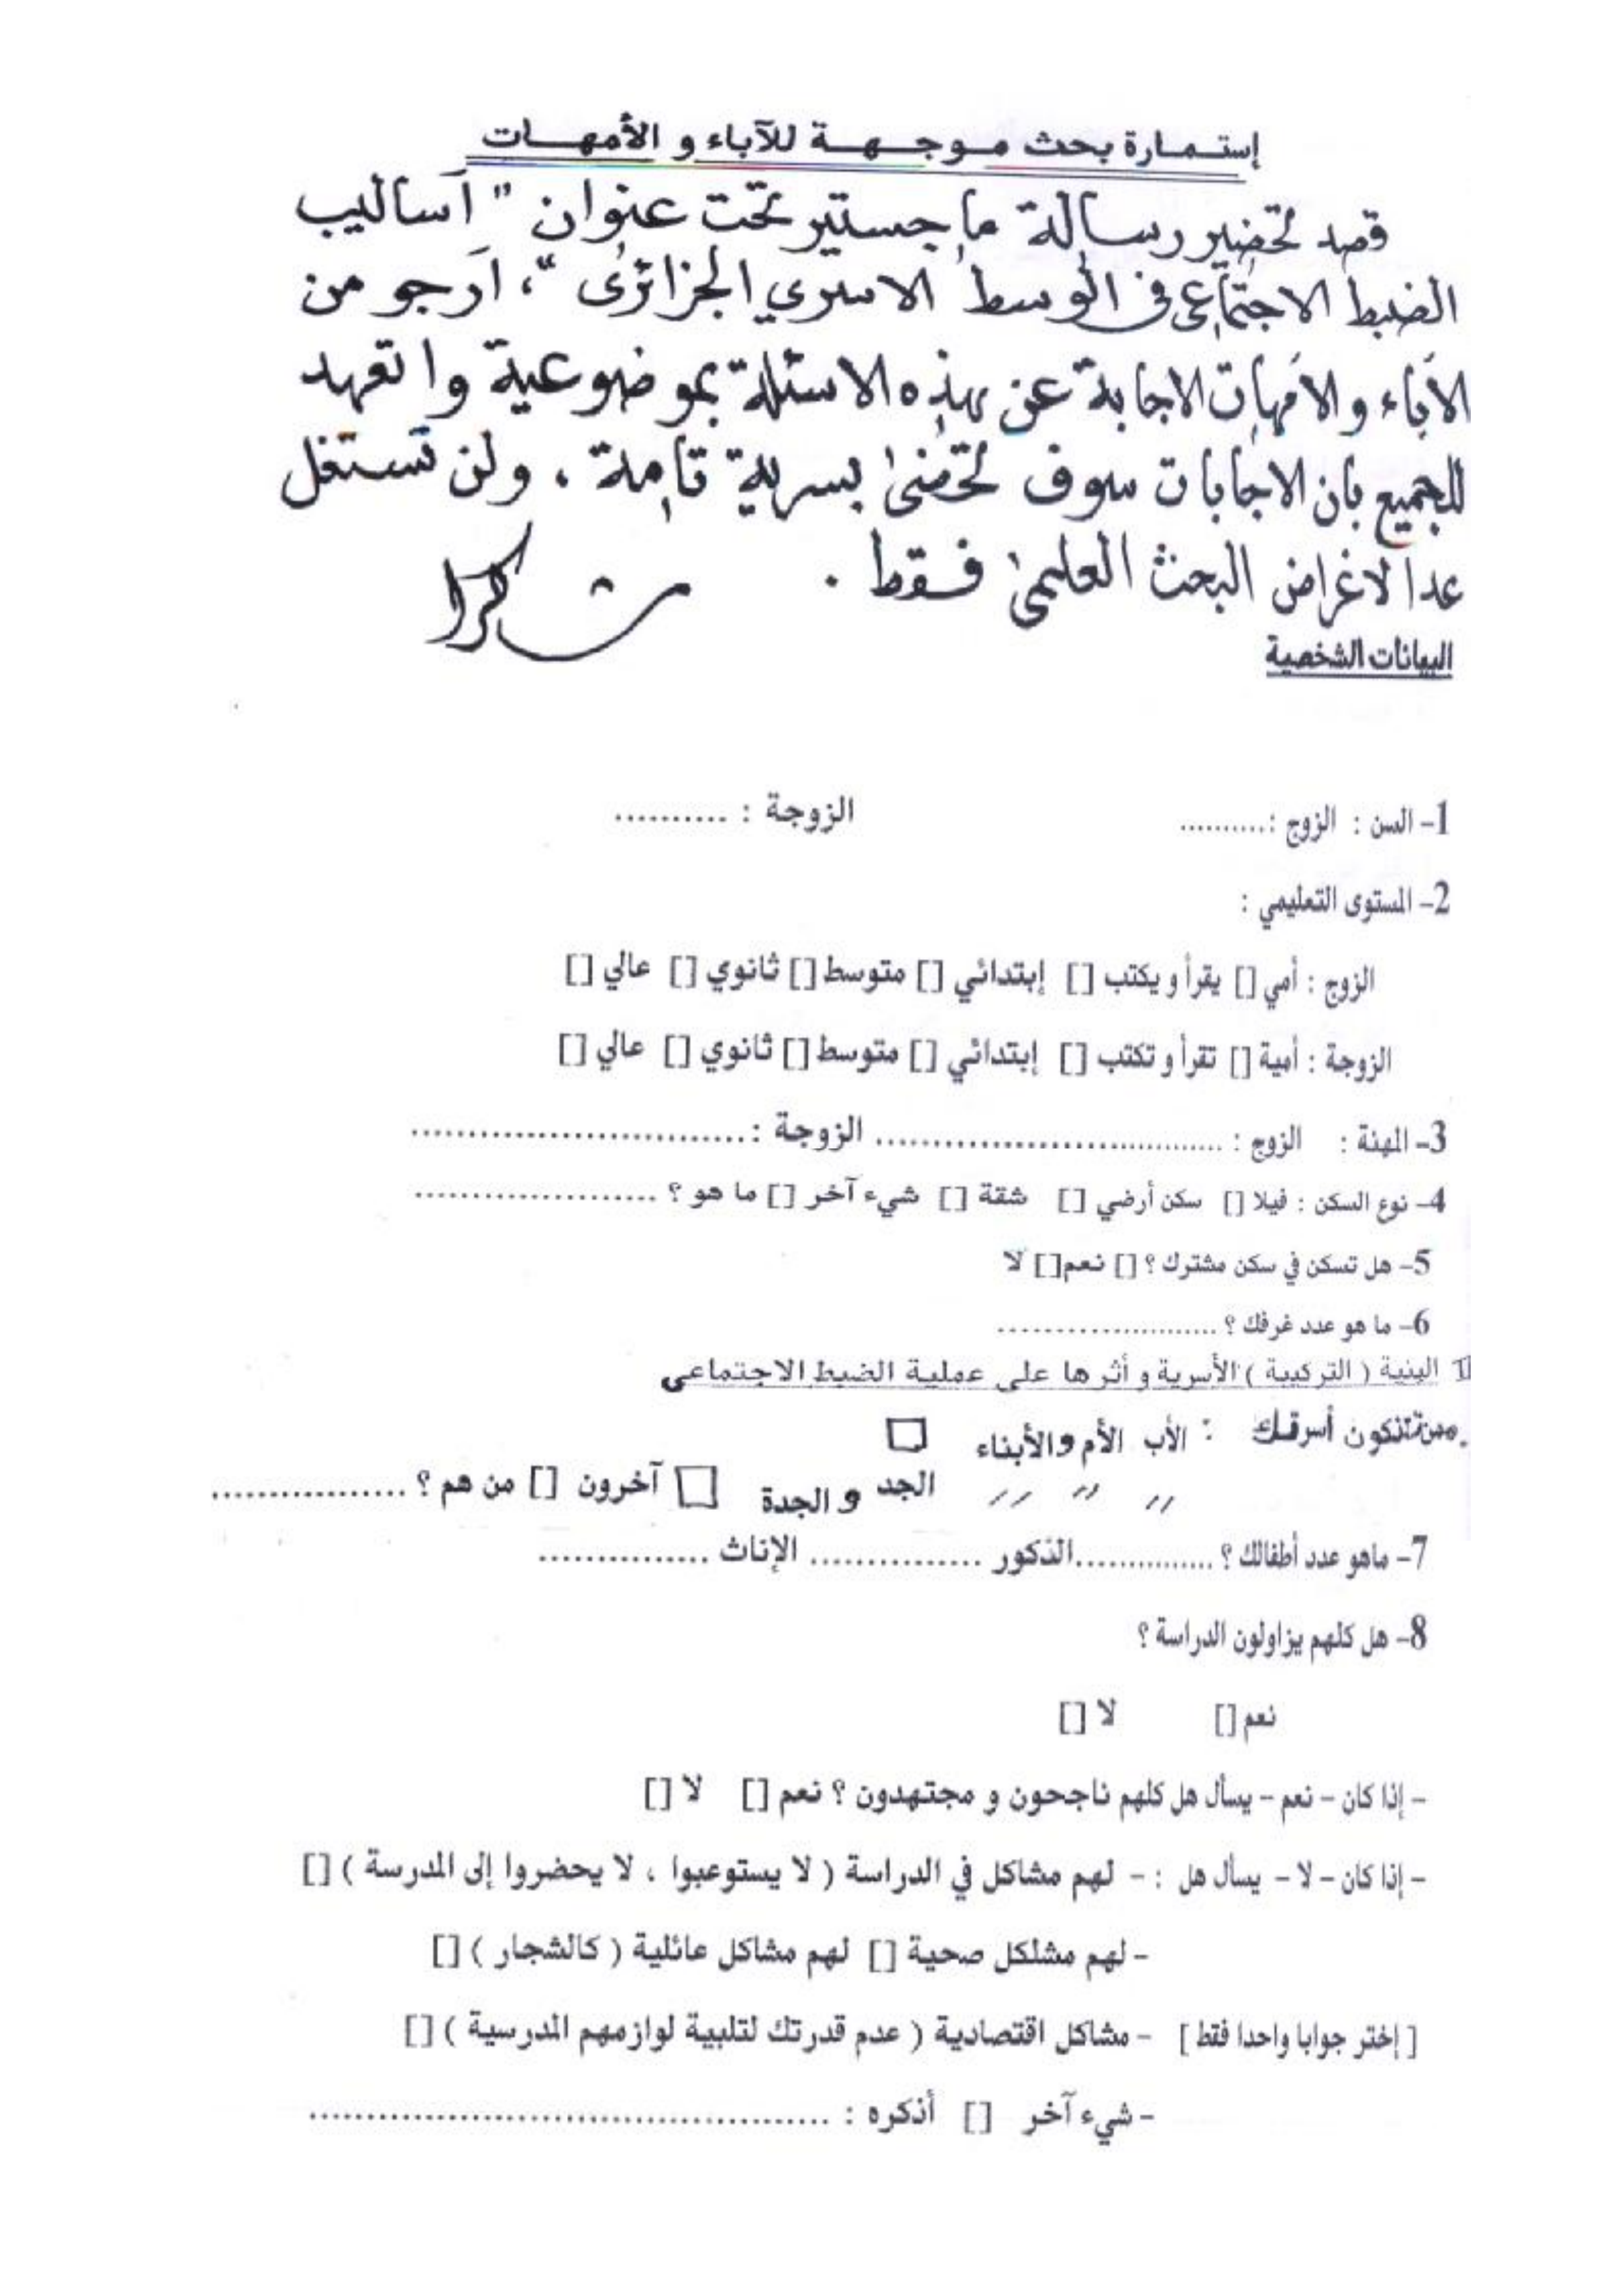 إستمارة بحث موجهة للآباء و الأمهات
قصد تحضير رسالة ماجستير تحت عنوان " أساليب
الضبط الاجتماعي في الوسط الاسري الجزائري "، ارجو من
الأباء والأمهات الاجابة عن هذه الاسئلة بموضوعية واتعهد
للجميع بان الاجابات سوف تحضى بسرية تامة . ولن تستغل
عدا لاغراض البحث العلمي فقط .
شكرا
البيانات الشخصية
1- السن : الزوج :.......... الزوجة : ..........
2- المستوى التعليمي :
الزوج : أمي [] يقرأ و يكتب [] إبتدائي [] متوسط [] ثانوي [] عالي []
الزوجة : أمية [] تقرأ و تكتب [] إبتدائي [] متوسط [] ثانوي [] عالي []
3- المهنة : الزوج : .............................. الزوجة :..............................
4- نوع السكن : فيلا [] سكن أرضي [] شقة [] شيء آخر [] ما هو ؟ ......................
5- هل تسكن في سكن مشترك ؟ [] نعم [] لا
6- ما هو عدد غرفك ؟ ......................
II البنية ( التركيبة ) الأسرية و أثرها على عملية الضبط الاجتماعي
.ممن تتكون أسرتك : الأب الأم والأبناء □
" " " الجد و الجدة □ آخرون [] من هم ؟ .................
7- ماهو عدد أطفالك ؟ ...............الذكور ............... الإناث ...............
8- هل كلهم يزاولون الدراسة ؟
نعم [] لا []
- إذا كان - نعم - يسأل هل كلهم ناجحون و مجتهدون ؟ نعم [] لا []
- إذا كان - لا - يسأل هل : - لهم مشاكل في الدراسة ( لا يستوعبوا ، لا يحضروا إلى المدرسة ) []
- لهم مشلكل صحية [] لهم مشاكل عائلية ( كالشجار ) []
[ إختر جوابا واحدا فقط ] - مشاكل اقتصادية ( عدم قدرتك لتلبية لوازمهم المدرسية ) []
- شيء آخر [] أذكره : ..............................................